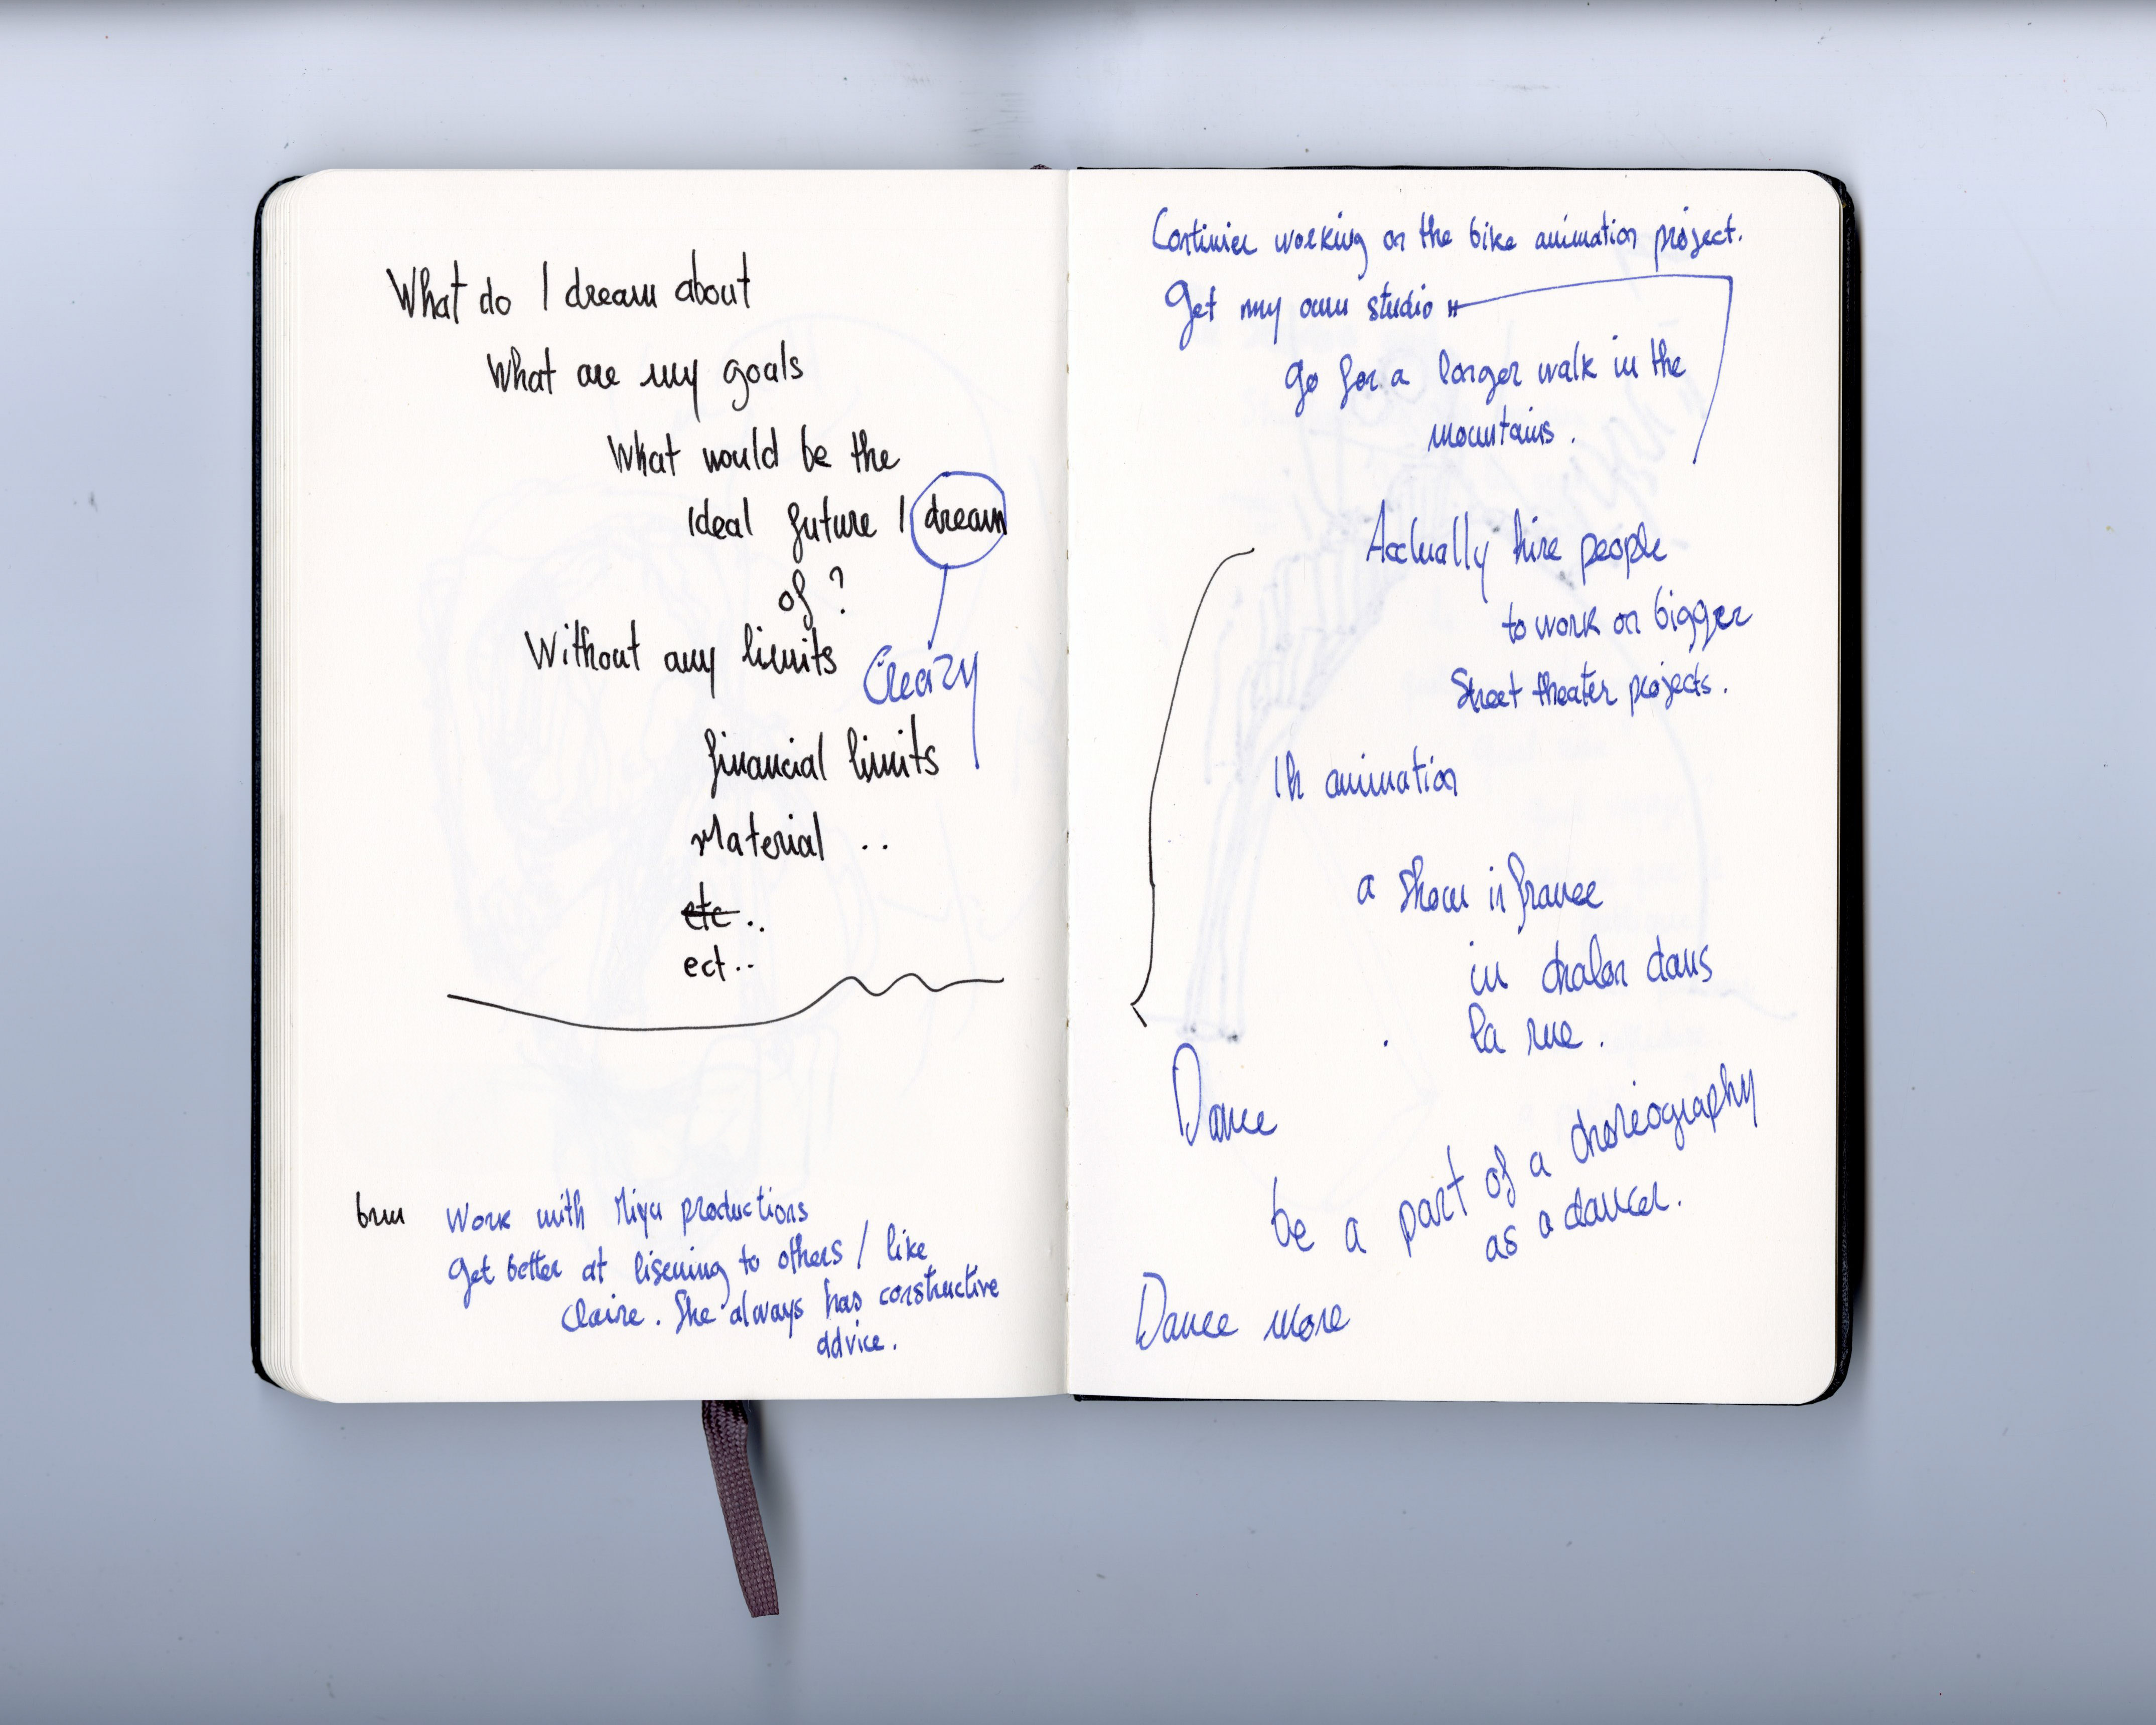 What do I dream about
What are my goals
What would be the
Ideal future I dream
of ?
Without any limits
Creazy
financial limits
Material ..
etc ..
ect ..
Work with Miyu productions
Get better at lisening to others / like
Claire. She always has constructive
advice.
Continier working on the bike animation project.
Get my own studio
Go for a longer walk in the
mountains .
Acctually hire people
to work on bigger
Street theater projects.
In animation
a show in france
in chalon dans
la rue .
Dance
be a part of a choreography
as a dancer.
Dance more